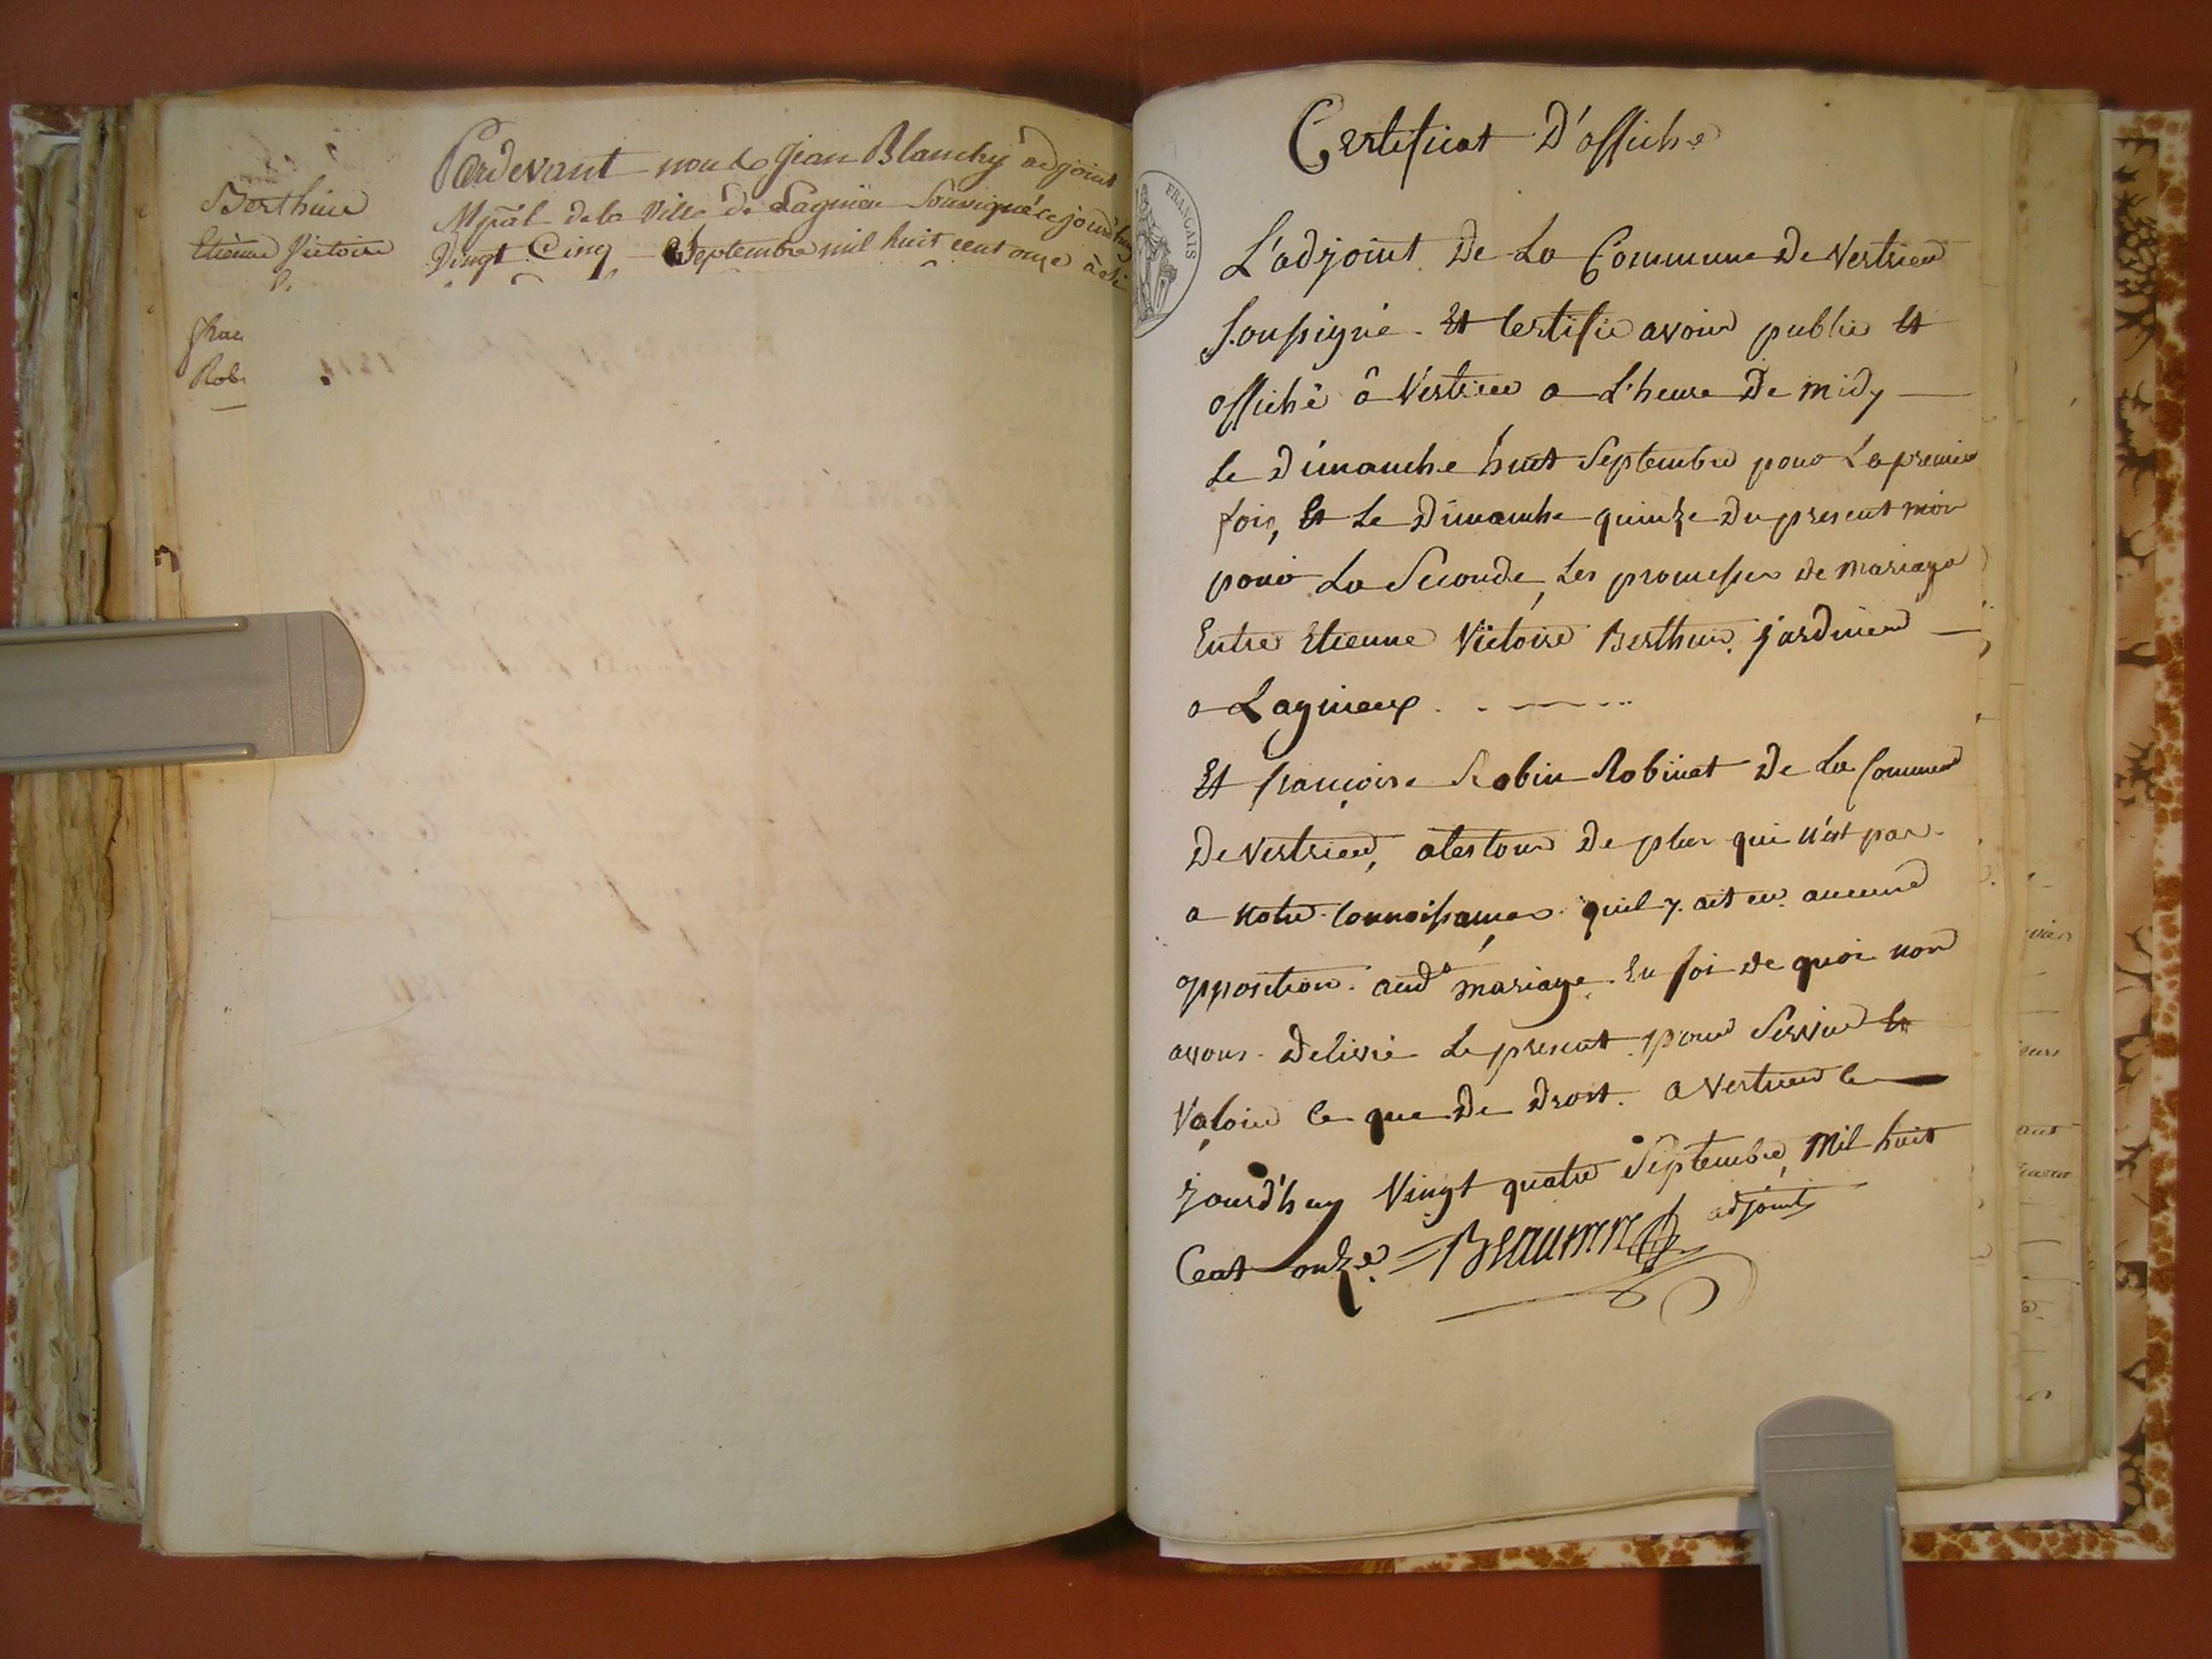 Berthier
Etienne Victoire
Pardevant nous Jean Blanchy adjoint
Mpāl de la Ville de Lagnieu Soussigné ce jourd'huy
Vingt Cinq Septembre mil huit cent onze à di
fran
Rob
Certificat D'affiche
FRANÇAIS
L'adjoint De La Commune De Vertrieu
Soussigné Et Certifie avoir publié Et
affiché â Vertrieu a L'heure De midy
Le Dimanche huit Septembre pour La premier
fois, Et Le Dimanche quinze Du present mois
pour La Seconde, Les promesses de Mariage
Entre Etienne Victoire Berthier jardinier
a Lagnieux
Et françoise Robin Robinet De La Commune
De Vertrieu, atestons De plus qui n'est pas
a Notre Connoissance quil y ait eu aucune
opposition aud.t mariage. En foi de quoi nous
avons Delivré Le present pour Servir Et
Valoir Ce que De Droit. a Vertrieu Ce
jourd'huy Vingt quatre Septembre, Mil huit
Cent onze Beaumme adjoint